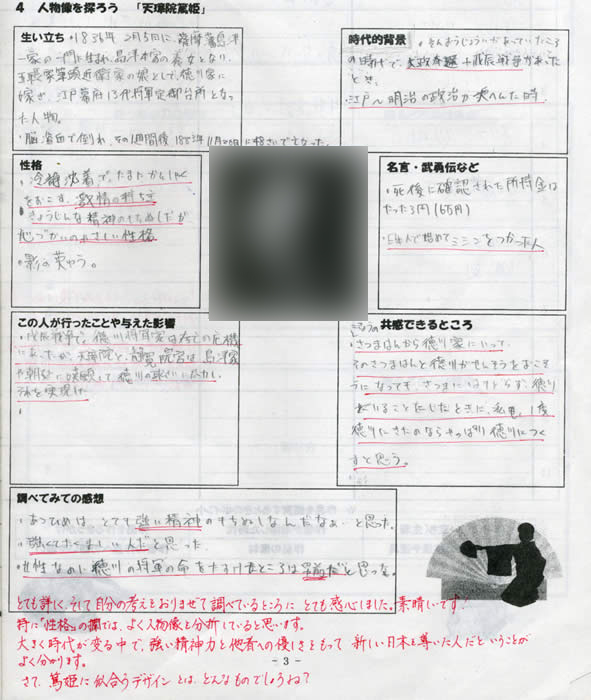 4 人物像を探ろう 「天璋院篤姫」
生い立ち
・1836年 2月5日に、薩摩藩島津
一家の一門に生まれ、島津本家の養女となり、
五摂家筆頭近衛家の娘として、徳川家に
嫁ぎ、江戸幕府13代将軍家定御台所となっ
た人物。
・脳溢血で倒れ、その1週間後
に48さいで亡なった。
時代的背景
の時代で、
戊辰戦争があった
とき。
・江戸〜明治の政治が大へんな時。
性格
・冷静沈着で、たまにかんしゃく
をおこす、激情の持ち主
・きょうじんな精神のもちぬしだが
心づかいのやさしい性格
名言・武勇伝など
・死後に確認された所持金は
たった3円(6万円)
・日本人で始めてミシンをつかった人
この人が行ったことや与えた影響
・戊辰戦争で、徳川将軍家は存亡の危機
にあったが、天璋院と、静寛院宮は、島津家
や朝廷に嘆願して、徳川の救済に尽力し、
それを実現した
共感できるところ
・さつまはんから徳川家にいって、
そのさつまはんと徳川がせんそうをおこそ
うになっても、さつまにはもどらず、徳川
にいることにしたときに、私も、1度
徳川にきたのならやっぱり徳川につく
すと思う。
調べてみての感想
・あつひめは、とても強い精神のもちぬしなんだなぁ…と思った。
・強くてたくましい人だと思った。
・女性なのに徳川の将軍の命をたすけたところは
だと思った。
とても詳しく、そして自分の考えをおりまぜて調べているところに とても感心しました。素晴しいです!
特に「性格」の欄では、よく人物像と分析していると思います。
大きく時代が変る中で、強い精神力と他者への優しさをもって 新しい日本を導いた人だということが
よく分かります。
さて、篤姫に似合うデザインとは、どんなものでしょうね?
- 3 -